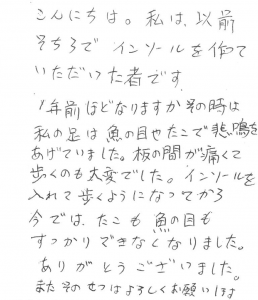 こんにちは。私は、以前
そちらで インソールを作って
いただいた者です。
1年前ほどなりますがその時は
私の足は魚の目やたこで悲鳴を
あげていました。板の間が痛くて
歩くのも大変でした。インソールを
入れて歩くようになってから
今では、たこも魚の目も
すっかりできなくなりました。
ありがとうございました。
またそのせつはよろしくお願いします